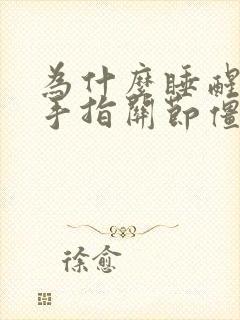 為什麼睡醒
手指關節僵
徐愈